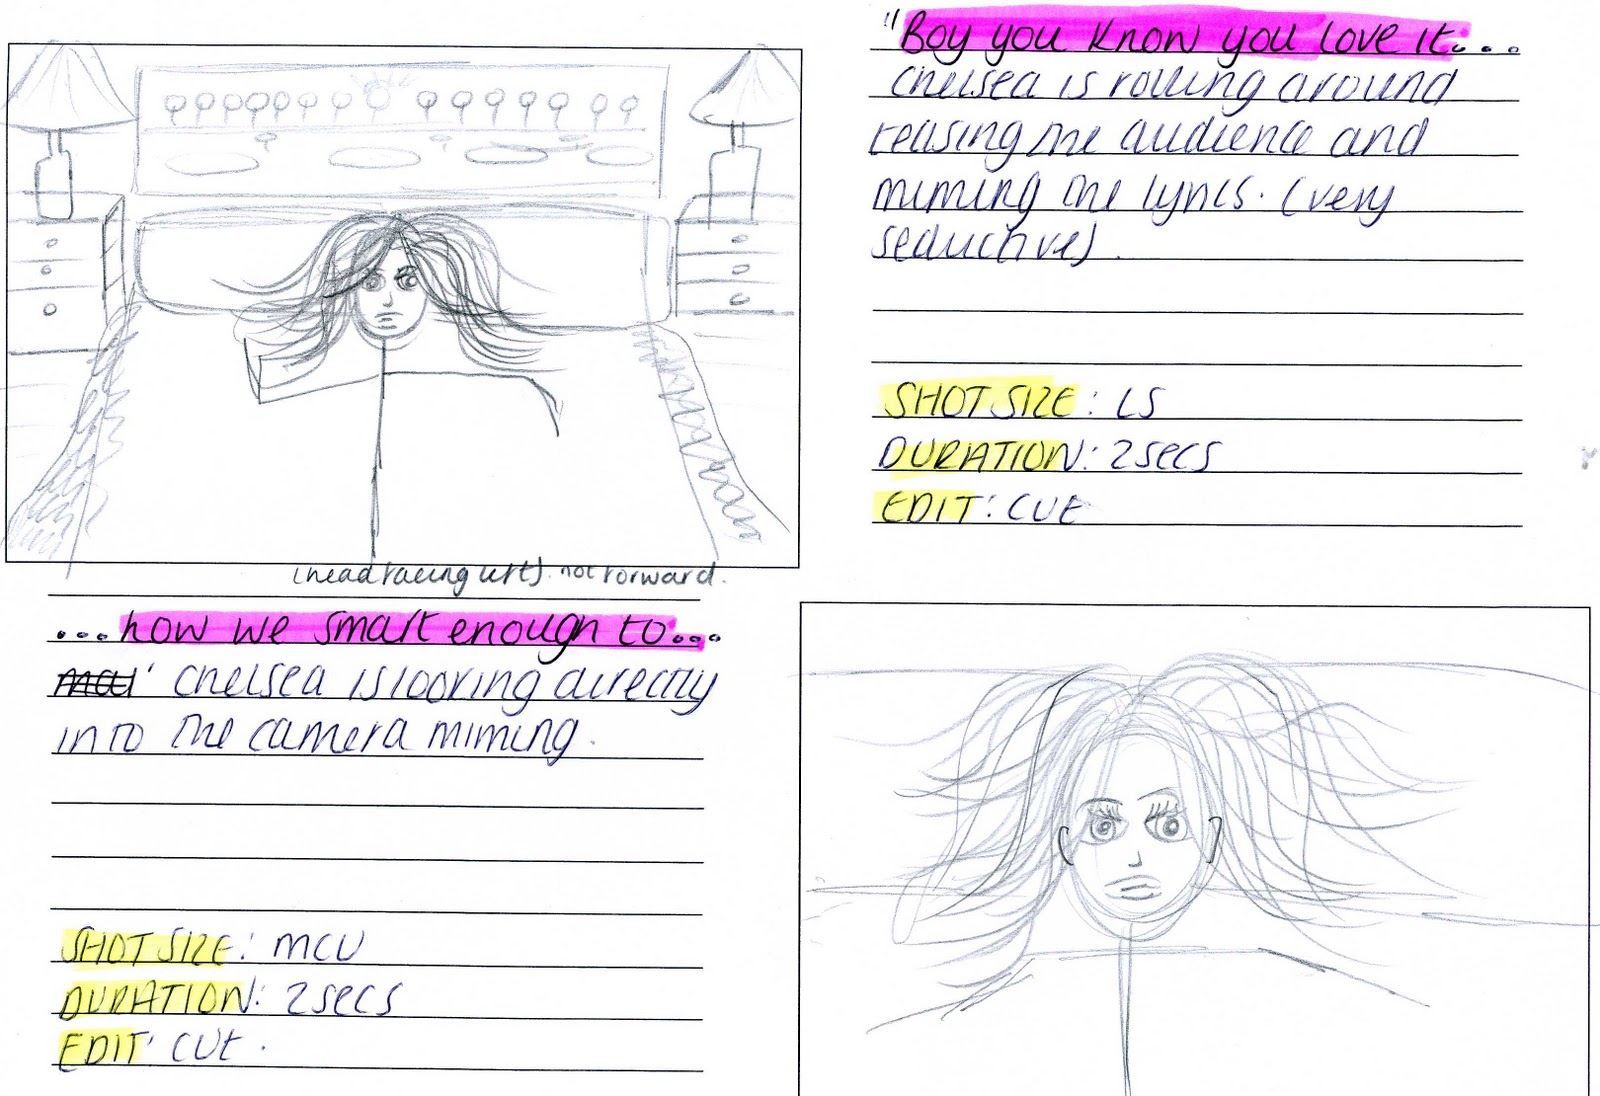 "Boy you know you love it....
Chelsea is rolling around
teasing the audience and
miming the lyrics. (very
seductive).
SHOT SIZE: LS
DURATION: 2secs
EDIT: CUT
(head facing left). not forward.
...how we smart enough to...
mcu Chelsea is looking directly
into the camera miming.
SHOT SIZE: MCU
DURATION: 2secs
EDIT: CUT.